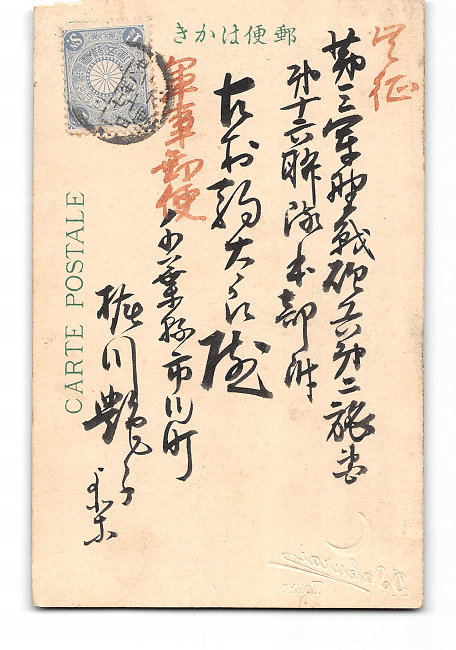 郵便はかき
出征
第三軍野戦砲兵第二旅団
第十六聯隊本部附
大尉殿
軍事郵便
千葉縣市川町
川艶子
CARTE POSTALE
TOKYO